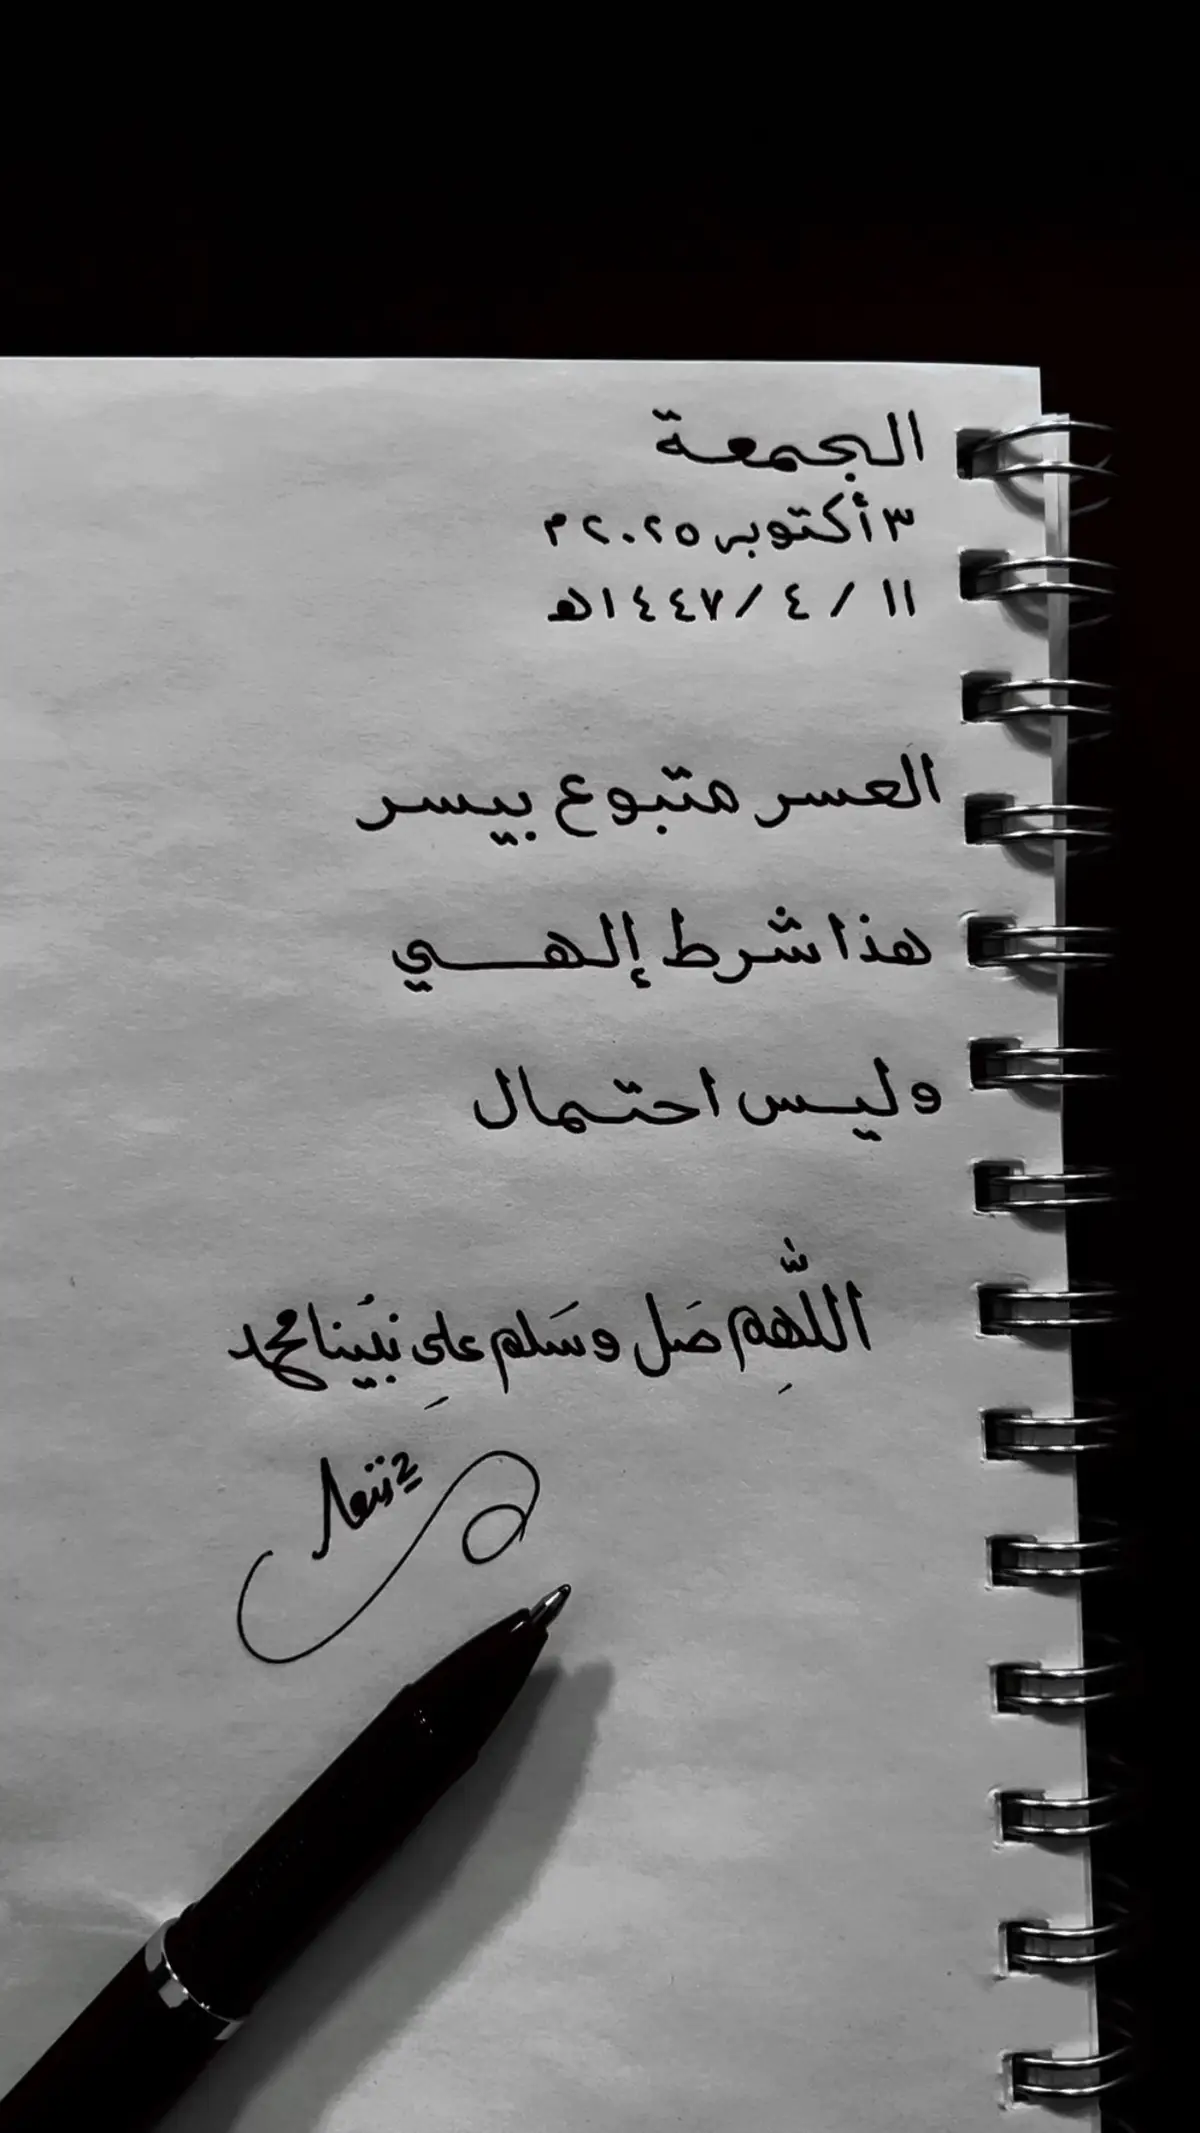 الجمعة
٣ أكتوبر ٢٠٢٥م
١١ / ٤ / ١٤٤٧هـ
العسر متبوع بيسر
هذا شرط إلهي
وليس احتمال
اللَّهم صَل وسَلم على نبينا محمد